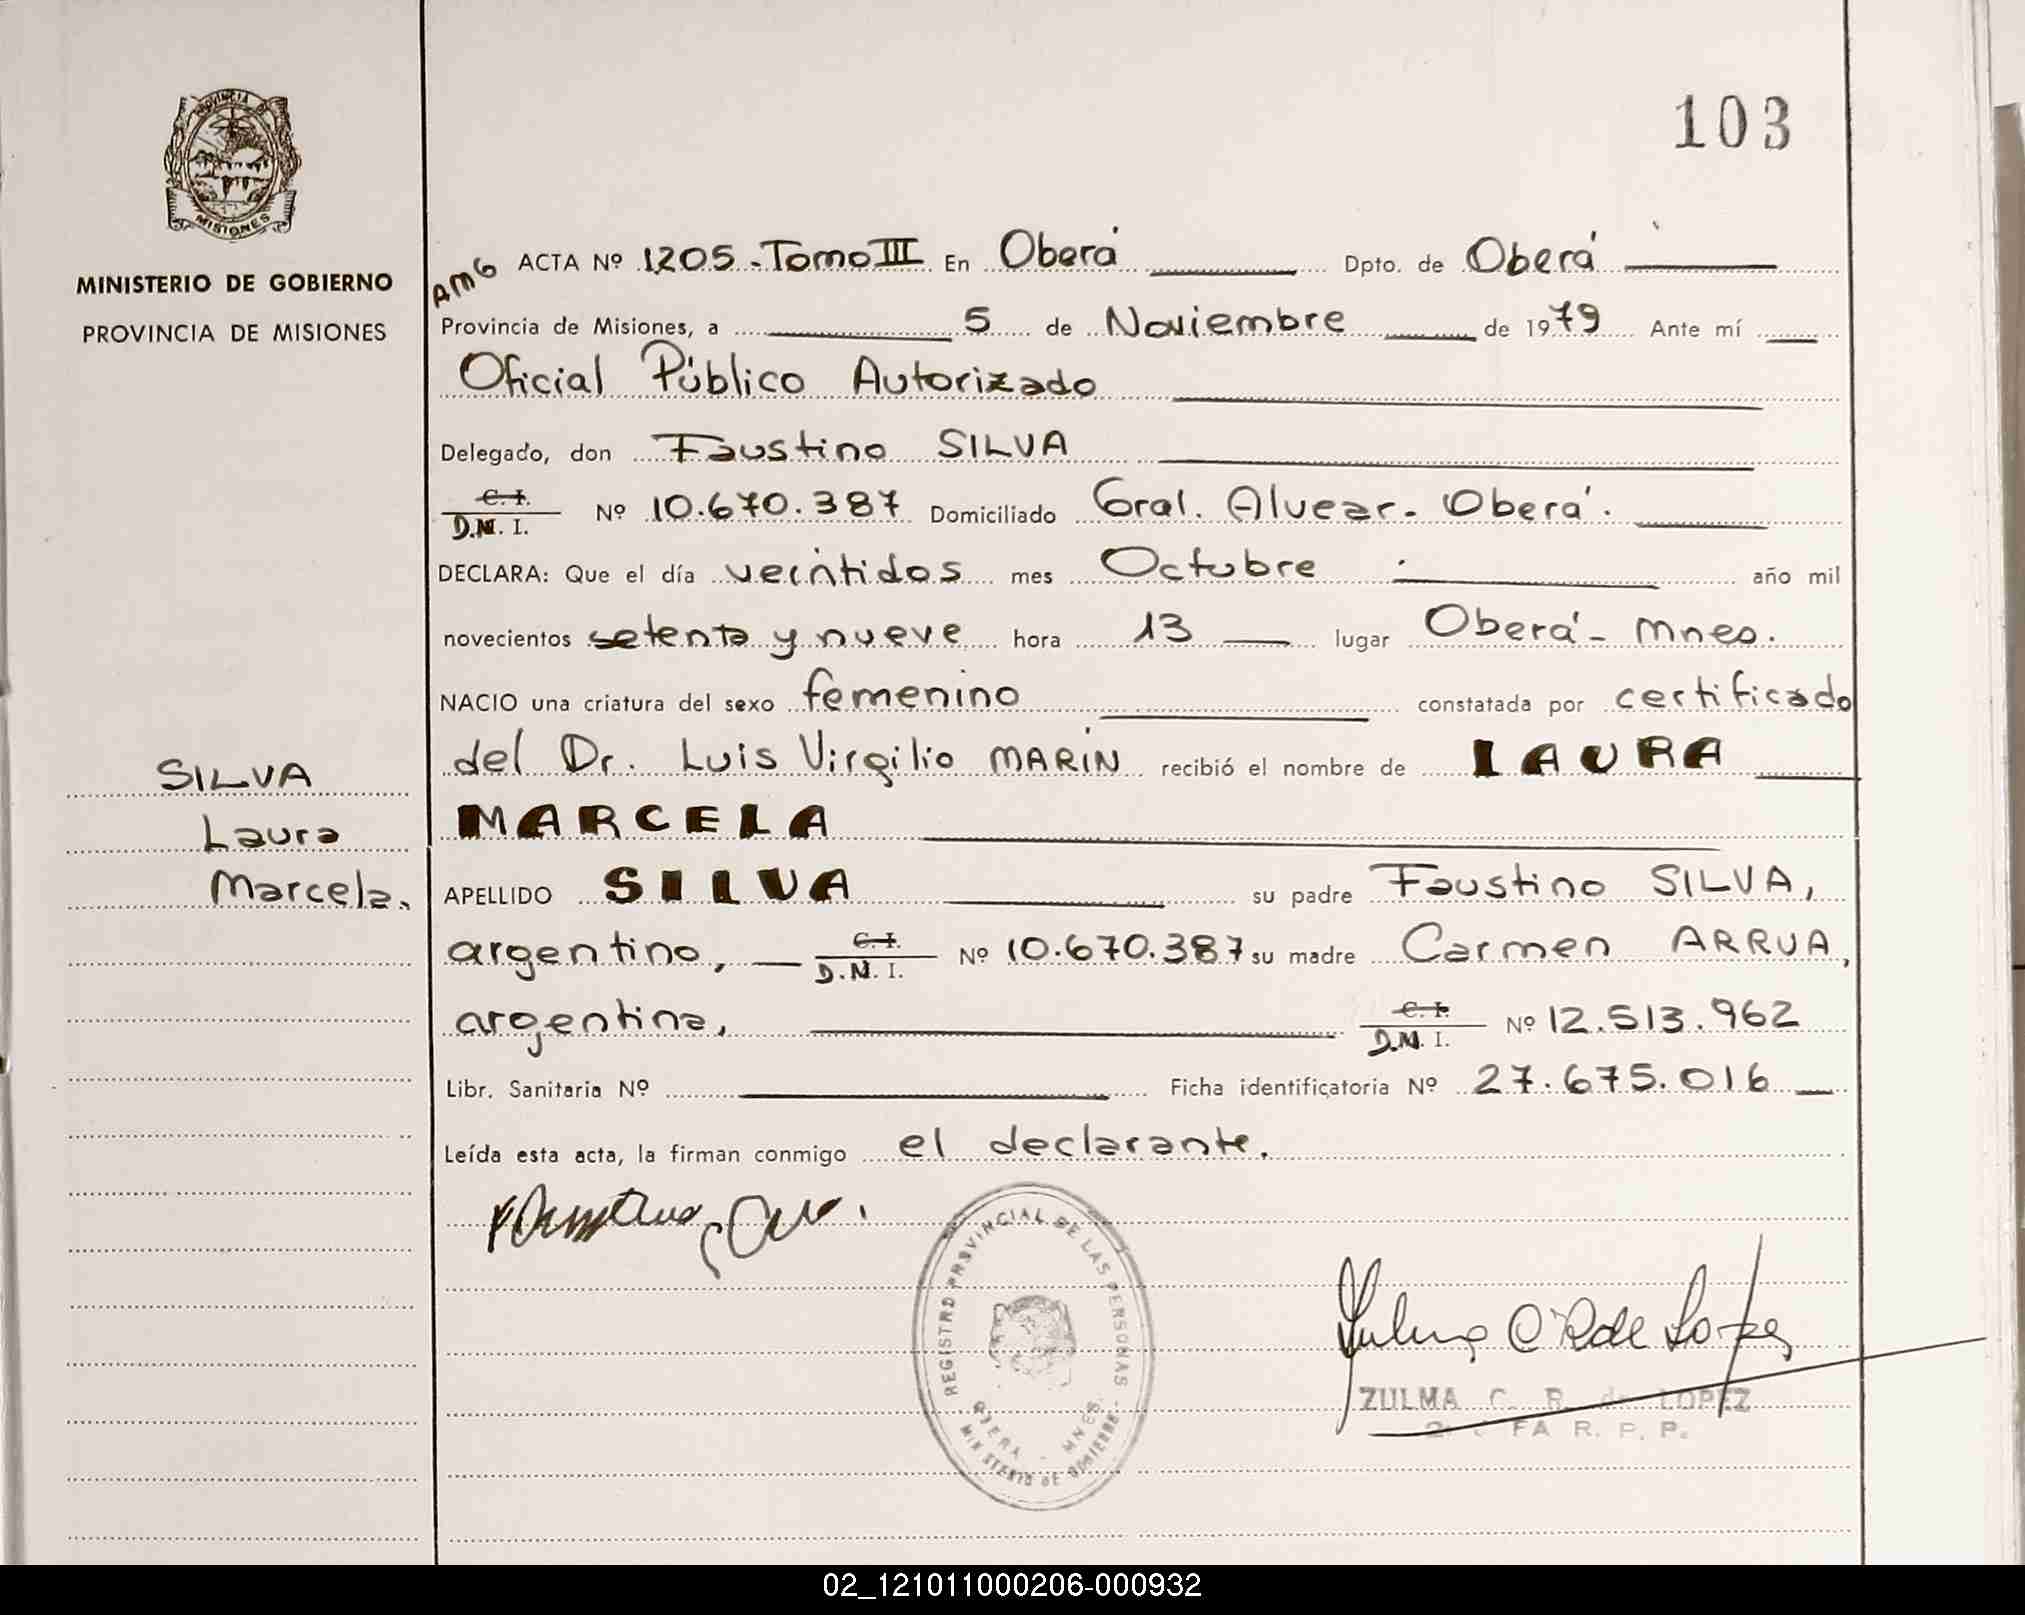 103
PROVINCIA DE
MISIONES
MINISTERIO DE GOBIERNO
PROVINCIA DE MISIONES
AMG ACTA Nº 1205 - Tomo III En Oberá Dpto. de Oberá
Provincia de Misiones, a 5 de Noviembre de 1979 Ante mí
Oficial Público Autorizado
Delegado, don Faustino SILVA
C. I.
D.N.I. Nº 10.670.387 Domiciliado Gral. Alvear - Oberá.
DECLARA: Que el día veintidos mes Octubre año mil
novecientos setenta y nueve hora 13 lugar Oberá - Mnes.
NACIO una criatura del sexo femenino constatada por certificado
del Dr. Luis Virgilio MARÍN recibió el nombre de LAURA
MARCELA
SILVA
Laura
Marcela.
APELLIDO SILVA su padre Faustino SILVA,
argentino, C. I.
D.N.I. Nº 10.670.387 su madre Carmen ARRUA,
argentina, C. I.
D.N.I. Nº 12.513.962
Libr. Sanitaria Nº Ficha identificatoria Nº 27.675.016
Leída esta acta, la firman conmigo el declarante.
REGISTRO PROVINCIAL DE LAS PERSONAS
OBERA - MNES.
MINISTERIO DE GOBIERNO
Zulma C R de Lopez
ZULMA C. R. de LOPEZ
FA R. P. P.
02_121011000206-000932